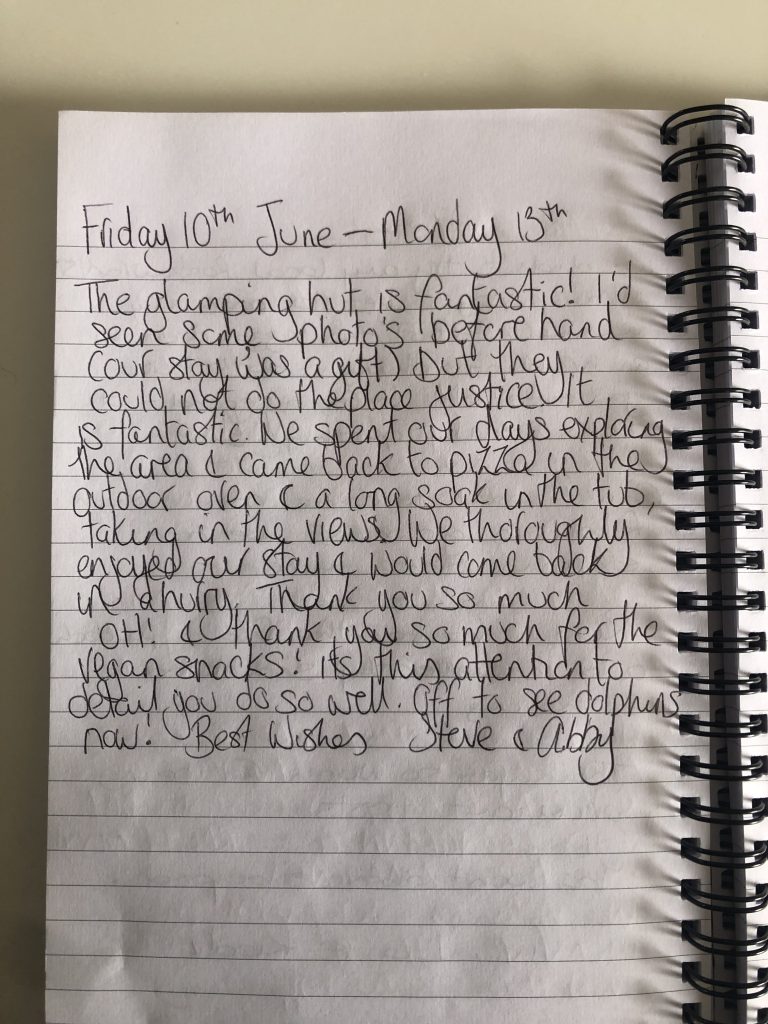 Friday 10th June – Monday 13th
The glamping hut is fantastic! I'd
seen some photo's before hand
(our stay was a gift) but they
could not do the place justice. It
is fantastic. We spent our days exploring
the area & came back to pizza in the
outdoor oven & a long soak in the tub,
taking in the views. We thoroughly
enjoyed our stay & would come back
in a hurry. Thank you so much
OH! & thank you so much for the
vegan snacks! its this attention to
detail you do so well. Off to see dolphins
now! Best Wishes Steve & Abby